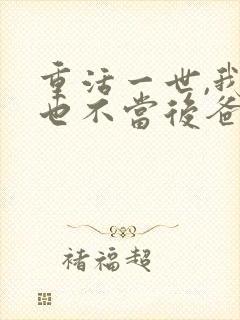 重活一世,我
也不當後爸
褚福超